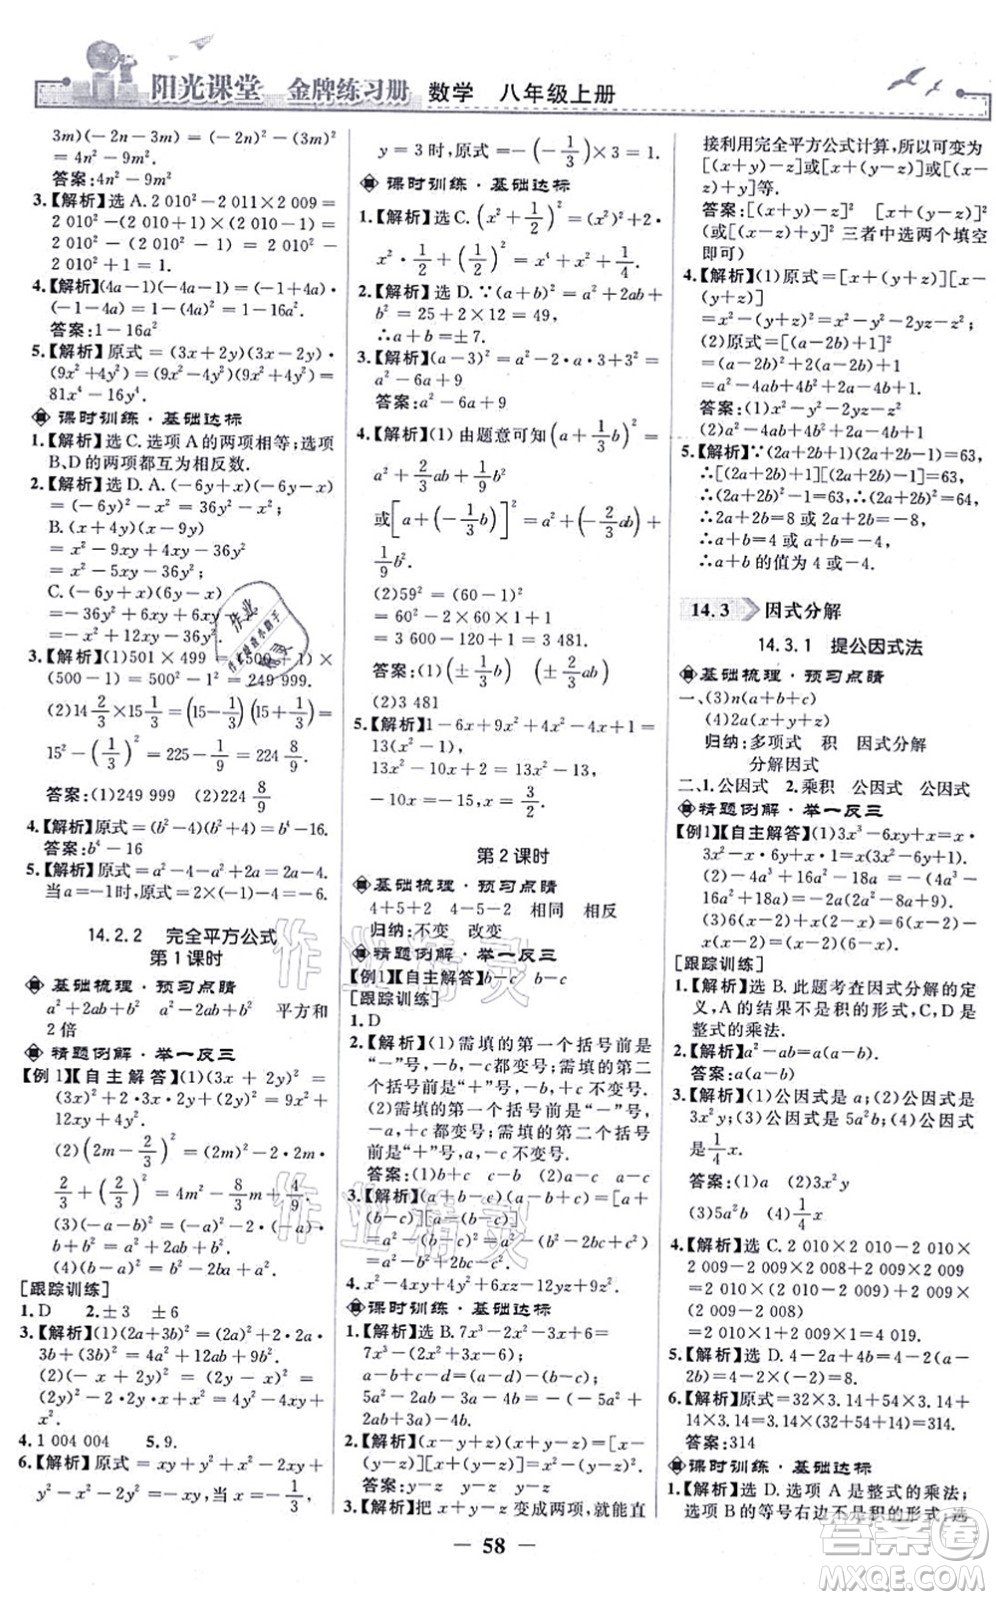 阳光课堂 金牌练习册 数学 八年级上册
3m)(-2n-3m)=(-2n)²-(3m)²=4n²-9m².
答案:4n²-9m²
3.【解析】选 A.2 010²-2 011×2 009=
2 010²-(2 010+1)×(2 010-1)=
2 010²-(2 010²-1)=2 010²-
2 010²+1=1.
4.【解析】(4a-1)(-4a-1)=(-1+4a)·
(-1-4a)=(-1)²-(4a)²=1-16a²
答案:1-16a²
5.【解析】原式=(3x+2y)(3x-2y)·
(9x²+4y²)=(9x²-4y²)(9x²+4y²)=
81x⁴-16y⁴.
课时训练·基础达标
1.【解析】选 C.选项 A 的两项相等;选项
B、D 的两项都互为相反数.
2.【解析】选 D.A.(-6y+x)(-6y-x)
=(-6y)²-x²=36y²-x²;
B.(x+4y)(x-9y)
=x²-5xy-36y²
C.(-6y+x)(6y-x)
=-36y²+12xy-x²
3.【解析】(1)501×499=(500+1)×
(500-1)=500²-1²=249 999.
(2)14 2/3×15 1/3=(15-1/3)(15+1/3)=
15²-(1/3)²=225-1/9=224 8/9
答案:(1)249 999 (2)224 8/9
4.【解析】原式=(b²-4)(b²+4)=b⁴-16.
答案:b⁴-16
5.【解析】原式=a²-4-a²+2a=2a-4.
当a=-1时,原式=2×(-1)-4=-6.
14.2.2 完全平方公式
第 1 课时
基础梳理·预习点睛
a²+2ab+b² a²-2ab+b² 平方和
2 倍
精题例解·举一反三
【例 1】【自主解答】(1)(3x+2y)²=
(3x)²+2·3x·2y+(2y)²=9x²+
12xy+4y².
(2)(2m-2/3)²=(2m)²-2·2m·
2/3+(2/3)²=4m²-8/3m+4/9.
(3)(-a-b)²=(-a)²-2(-a)·
b+b²=a²+2ab+b².
(4)(-a+b)²=b²-2ab+a².
[跟踪训练]
1.D 2.±3 ±6
3.【解析】(1)(2a+3b)²=(2a)²+2·2a·
3b+(3b)²=4a²+12ab+9b²
(2)(-x+2y)²=(2y-x)²=
(2y)²-2·x·2y+x²=4y²-4xy+x².
4.1 004 004 5.9.
6.【解析】原式=xy+y²+x²-2xy+
y²-x²-2y²=-xy,当x=-1/3,
y=3 时,原式=-(-1/3)×3=1.
课时训练·基础达标
1.【解析】选 C.(x²+1/2)²=(x²)²+2·
x²·1/2+(1/2)²=x⁴+x²+1/4.
2.【解析】选 D.∵(a+b)²=a²+2ab+b²
=25+2×12=49,
∴a+b=±7.
3.【解析】(a-3)²=a²-2·a·3+3²=
a²-6a+9
答案:a²-6a+9
4.【解析】(1)由题意可知(a+1/3b)²=
a²+2/3ab+1/9b²
或[a+(-1/3b)]²=a²+(-2/3ab)+
1/9b².
(2)59²=(60-1)²
=60²-2×60×1+1²
=3 600-120+1=3 481.
答案:(1)(±2/3ab) (±1/3b)
(2)3 481
5.【解析】1-6x+9x²+4x²-4x+1=
13(x²-1),
13x²-10x+2=13x²-13,
-10x=-15,x=3/2.
第 2 课时
基础梳理·预习点睛
4+5+2 4-5-2 相同 相反
归纳:不变 改变
精题例解·举一反三
【例 1】【自主解答】b-c b-c
[跟踪训练]
1.D
2.【解析】(1)需填的第一个括号前是
“-”号,-b、-c都变号;需填的第二个
括号前是“+”号,-b、+c不变号.
(2)需填的第一个括号前是“-”号,
-a、+c 都变号;需填的第二个括号
前是“+”号,a、-c 不变号.
答案:(1)b+c c-b (2)a-c a-c
3.【解析】(a+b-c)(a-b+c)=[a+
(b-c)][a-(b-c)]
=a²-(b-c)²=a²-b²+2bc-c².
4.x²-4xy+4y²+6xz-12yz+9z².
课时训练·基础达标
1.【解析】选 B.7x³-2x²-3x+6=
7x³-(2x²+3x-6);
a-b+c-d=(a-d)-(b-c);
5a²-6ab-2a-3b=
5a²-(6ab+2a)-3b.
2.【解析】(x-y+z)(x+y-z)=[x-
(y-z)][x+(y-z)]
答案:x-(y-z) x+(y-z)
3.【解析】把 x+y-z 变成两项,就能直
接利用完全平方公式计算,所以可变为
[(x+y)-z]或[x+(y-z)]或[(x-
z)+y]等.
答案:[(x+y)-z]² [x+(y-z)]²
(或[(x-z)+y]² 三者中选两个填空
即可)
4.【解析】(1)原式=[x+(y-z)][x-
(y-z)]
=x²-(y-z)²=x²-(y²-2yz+z²)
=x²-y²+2yz-z²;
(2)原式=[(a-2b)+1]²
=(a-2b)²+2(a-2b)+1
=a²-4ab+4b²+2a-4b+1.
答案:(1)x²-y²+2yz-z²
(2)a²-4ab+4b²+2a-4b+1
5.【解析】∵(2a+2b+1)(2a+2b-1)=63,
∴[(2a+2b)+1][(2a+2b)-1]=63,
∴(2a+2b)²-1=63,(2a+2b)²=64,
∴2a+2b=8 或 2a+2b=-8,
∴a+b=4 或a+b=-4.
∴a+b 的值为 4 或-4.
14.3 因式分解
14.3.1 提公因式法
基础梳理·预习点睛
一、(3)n(a+b+c)
(4)2a(x+2y)
归纳:多项式 积 因式分解
分解因式
二、1.公因式 2.乘积 公因式 公因式
精题例解·举一反三
【例1】【自主解答】(1)3x²-6xy+x=x·
3x-x·6y+x·1=x(3x-6y+1).
(2)-4a³+16a²-18a=-(4a³-
16a²+18a)=-2a(2a²-8a+9).
(3)6(x-2)+x(2-x)=6(x-2)-
x(x-2)=(x-2)(6-x).
[跟踪训练]
1.【解析】选 B. 此题考查因式分解的定
义,A 的结果不是积的形式,C、D 是
整式的乘法.
2.【解析】a²-ab=a(a-b).
答案:a(a-b)
3.【解析】(1)公因式是 a;(2)公因式是
3x²y;(3)公因式是 5a²b;(4)公因式
是1/4x.
答案:(1)a (2)3x²y
(3)5a²b (4)1/4x
4.【解析】选 C.2 010×2 010-2 010×
2 009+2 009×2 009-2 008×2 009=
2 010×(2 010-2 009)+2 009×
(2 009-2 008)
=2 010×1+2 009×1=4 019.
5.【解析】选 D.4-2a+4b=4-2(a-
2b)=4-2×(-2)=8.
6.【解析】原式=32×3.14+54×3.14+
14×3.14=3.14×(32+54+14)=314.
答案:314
课时训练·基础达标
1.【解析】选项 A 是整式的乘法;
选项 B 的等号右边不是积的形式;选
— 58 —
作业精灵
作业精灵
答案圈
MXQE.COM